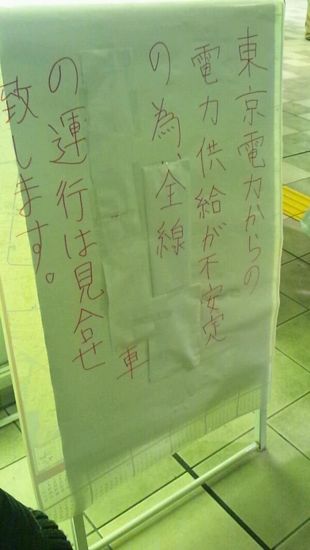 東京電力からの
電力供給が不安定
の為、全線
車
の運行は見合せ
致します。